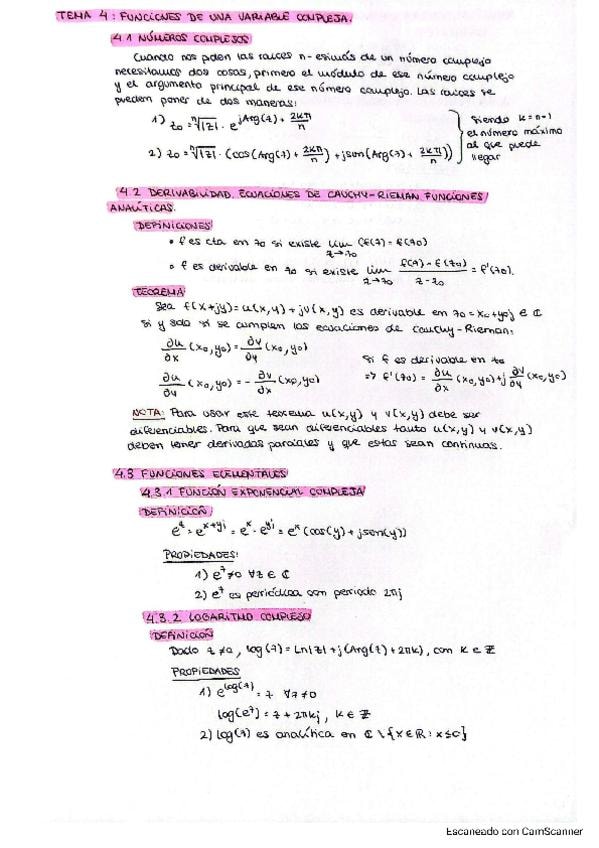 TEMA 4: FUNCIONES DE UNA VARIABLE COMPLEJA.
4.1 NÚMEROS COMPLEJOS
Cuando nos piden las raíces n-esimas de un número complejo
necesitamos dos cosas, primero el módulo de ese número complejo
y el argumento principal de ese número complejo. Las raíces se
pueden poner de dos maneras:
1) z₀ = ⁿ√|z| · e^jArg(z) + 2kπ/n
2) z₀ = ⁿ√|z| · (cos(Arg(z) + 2kπ/n) + jsen(Arg(z) + 2kπ/n))
siendo k = n-1
el número máximo
al que puede
llegar
4.2 DERIVABILIDAD. ECUACIONES DE CAUCHY-RIEMAN FUNCIONES
ANALÍTICAS.
DEFINICIONES
• f es cta en z₀ si existe lim z→z₀ (f(z) = f(z₀)
• f es derivable en z₀ si existe lim z→z₀ f(z) - f(z₀) / z - z₀ = f'(z₀).
TEOREMA
Sea f(x+jy) = u(x,y) + jv(x,y) es derivable en z₀ = x₀+y₀j ∈ ℂ
si y solo si se cumplen las ecuaciones de Cauchy-Rieman:
∂u/∂x (x₀,y₀) = ∂v/∂y (x₀,y₀)
∂u/∂y (x₀,y₀) = - ∂v/∂x (x₀,y₀)
Si f es derivable en z₀
=> f'(z₀) = ∂u/∂x (x₀,y₀) + j ∂v/∂y (x₀,y₀)
NOTA: Para usar este teorema u(x,y) y v(x,y) debe ser
diferenciables. Para que sean diferenciables tanto u(x,y) y v(x,y)
deben tener derivadas parciales y que estas sean continuas.
4.3 FUNCIONES ELEMENTALES
4.3.1 FUNCIÓN EXPONENCIAL COMPLEJA
DEFINICIÓN
e^z = e^x+yj = e^x · e^yj = e^x (cos(y) + jsen(y))
PROPIEDADES:
1) e^z ≠ 0 ∀z ∈ ℂ
2) e^z es periódica con periodo 2πj
4.3.2 LOGARITMO COMPLEJO
DEFINICIÓN
Dado z ≠ 0, log(z) = Ln|z| + j(Arg(z) + 2πk), con k ∈ ℤ
PROPIEDADES
1) e^log(z) = z ∀z ≠ 0
log(e^z) = z + 2πkj, k ∈ ℤ
2) log(z) es analítica en ℂ \ {x ∈ ℝ : x ≤ 0}
Escaneado con CamScanner